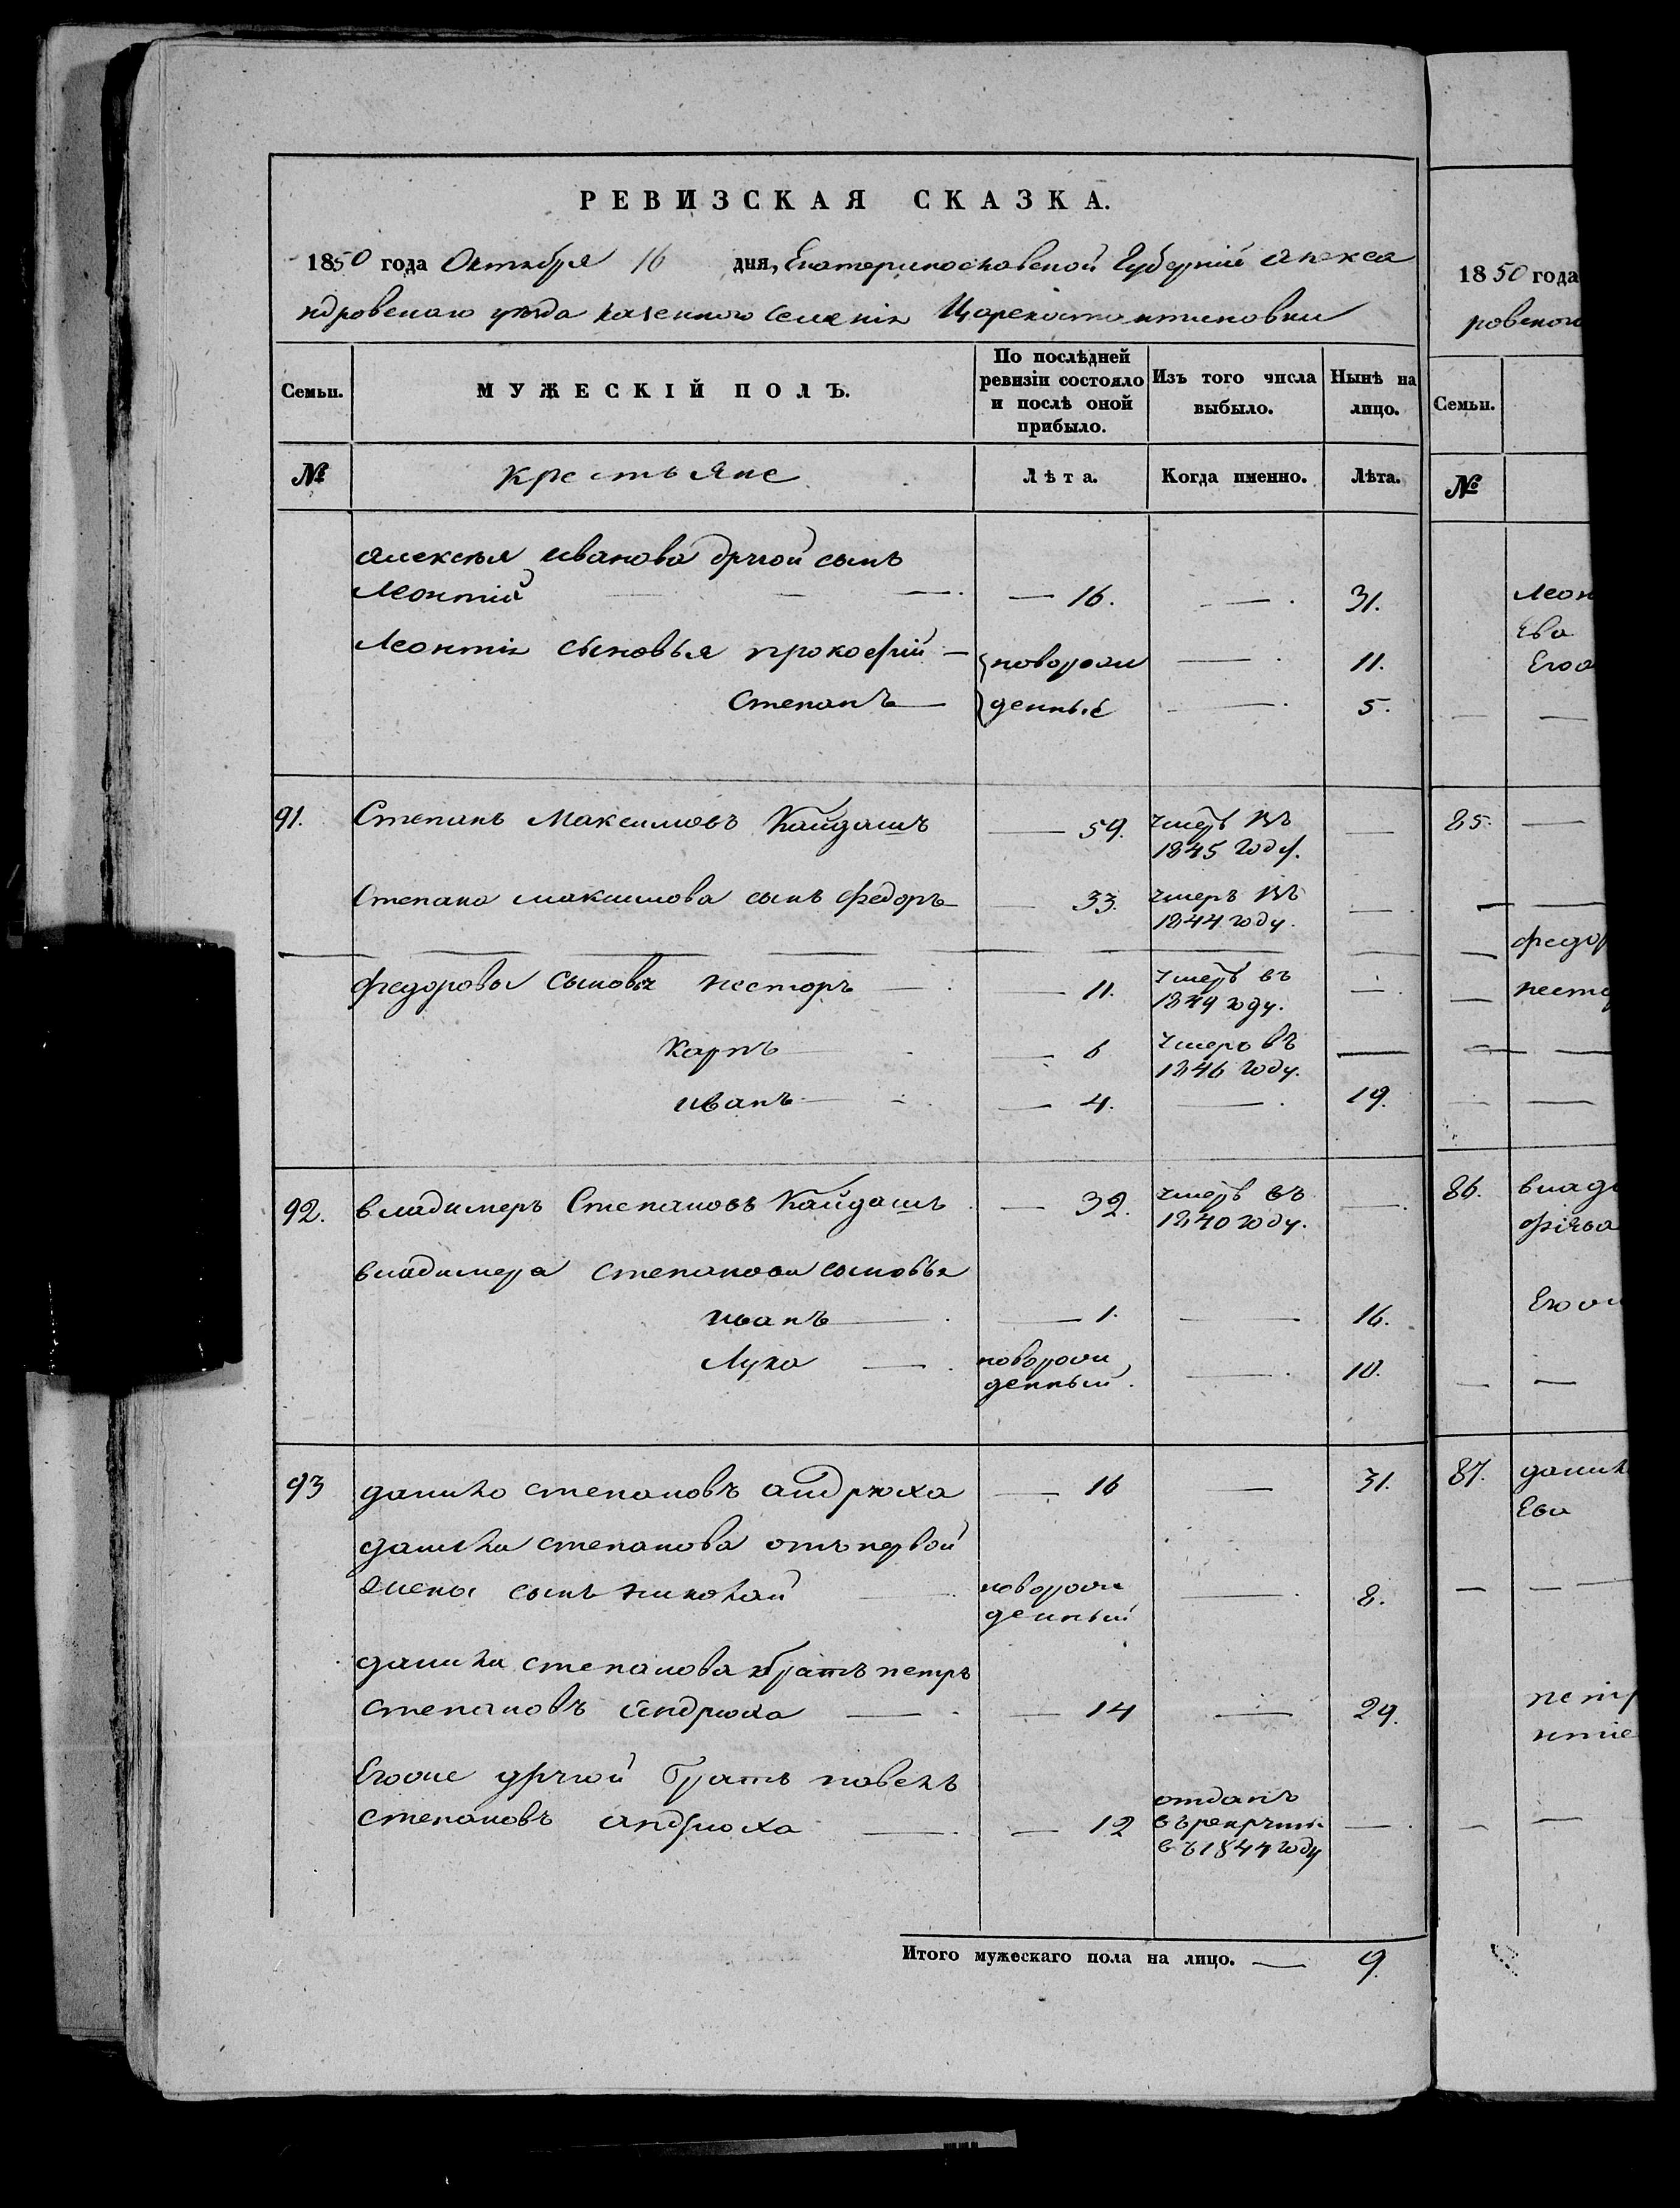 РЕВИЗСКАЯ СКАЗКА.
1850 года Октября 16 дня, Екатеринославской Губерніи Алекса
ндровскаго уѣзда казеннаго селенія Цареконстантиновки
Семьи.
МУЖЕСКІЙ ПОЛЪ.
По послѣдней
ревизіи состояло
и послѣ оной
прибыло.
Изъ того числа
выбыло.
Нынѣ на
лицо.
№
Крестьяне
Лѣта.
Когда именно.
Лѣта.
Алексѣя Иванова другой сынъ
Леонтій — 16. — 31.
Леонтія сыновья прокофій — новорож — 11.
Степанъ — денные — 5.
91. Степанъ Максимовъ Кайдашъ — 59. умеръ въ
1845 году. —
Степана максимова сынъ федоръ — 33. умеръ въ
1844 году. —
федоровы сыновья несторъ — 11. умеръ въ
1849 году. —
Карпъ — 6 умеръ въ
1846 году. —
иванъ — 4. — 19.
92. владимеръ Степановъ Кайдашъ — 32. умеръ въ
1840 году. —
владимера степанова сыновья
иванъ — 1. — 16.
Лука — новорож
денный. — 10.
93 данило степановъ андрюха — 16 — 31.
данила степанова отъ первой
жены сынъ николай новорож
денный — 8.
данила степанова братъ петръ
степановъ андрюха — 14 — 29.
Егоже другой братъ павелъ
степановъ андрюха — 12 отданъ
въ рекруты
въ 1844 году —
Итого мужескаго пола на лицо. — 9.
1850 года
ровского
Семьи.
№
Леон
Ева
Его
85.
федор
несто
86. влади
Его
87. данил
Ева
петр